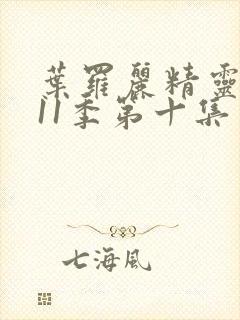 葉羅麗精靈
11季第十集
七海風